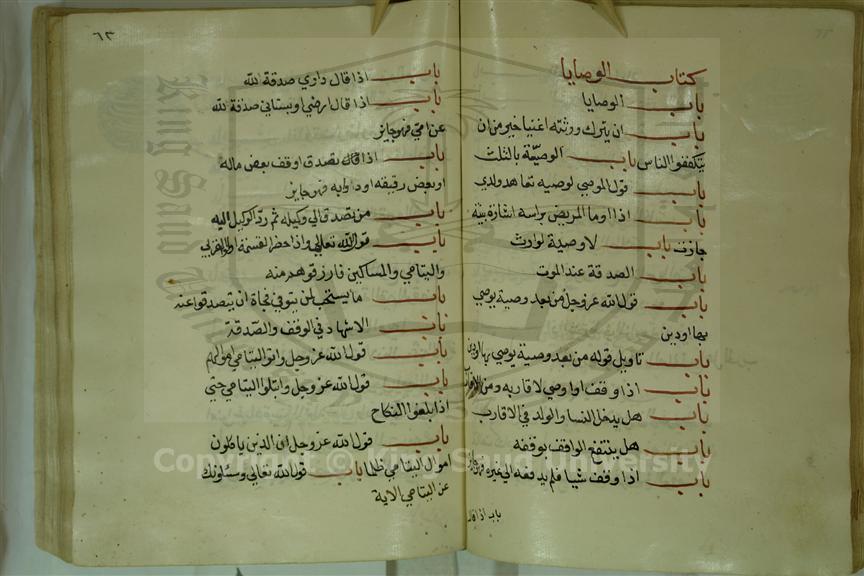 كتاب الوصايا
باب الوصايا
باب ان يترك ورثته اغنيا خير من ان
يتكففوا الناس باب الوصية بالثلث
باب قول الموصي لوصيه تعاهد ولدي
باب اذا اوما المريض براسه اشارة بينة
جازت باب لا وصية لوارث
باب الصدقة عند الموت
باب قول الله عز وجل من بعد وصية يوصي
بها او دين
باب تاويل قوله من بعد وصية يوصي بها او دين
باب اذا وقف او اوصي لاقاربه ومن الاقارب
باب هل يدخل النسا والولد في الاقارب
باب هل ينتفع الواقف بوقفه
باب اذا وقف شيا فلم يدفعه الي غيره فهو جائز
باب اذا قال
٦٣
باب اذا قال داري صدقة لله
باب اذا قال ارضي او بستاني صدقة لله
عن امي فهو جايز
باب اذا تصدق او وقف بعض ماله
او بعض رقيقه او دوابه فهو جايز
باب من تصدق الي وكيله ثم رد الوكيل اليه
باب قول الله تعالي واذا حضر القسمة اولوا القربي
واليتامي والمساكين فارزقوهم منه
باب ما يستحب لمن يتوفي فجاة ان يتصدقوا عنه
باب الاشهاد في الوقف والصدقة
باب قول الله عز وجل واتوا اليتامي اموالهم
باب قول الله عز وجل وابتلوا اليتامي حتي
اذا بلغوا النكاح
باب قول الله عز وجل ان الذين ياكلون
اموال اليتامي ظلما باب قول الله تعالي ويسئلونك
عن اليتامي الاية
Copyright © King Saud University